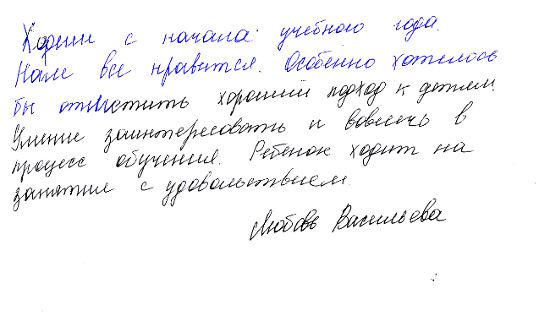 Ходим с начала учебного года.
Нам все нравится. Особенно хотелось
бы отметить хороший подход к детям.
Умение заинтересовать и вовлечь в
процесс обучения. Ребенок ходит на
занятия с удовольствием.
Любовь Васильева